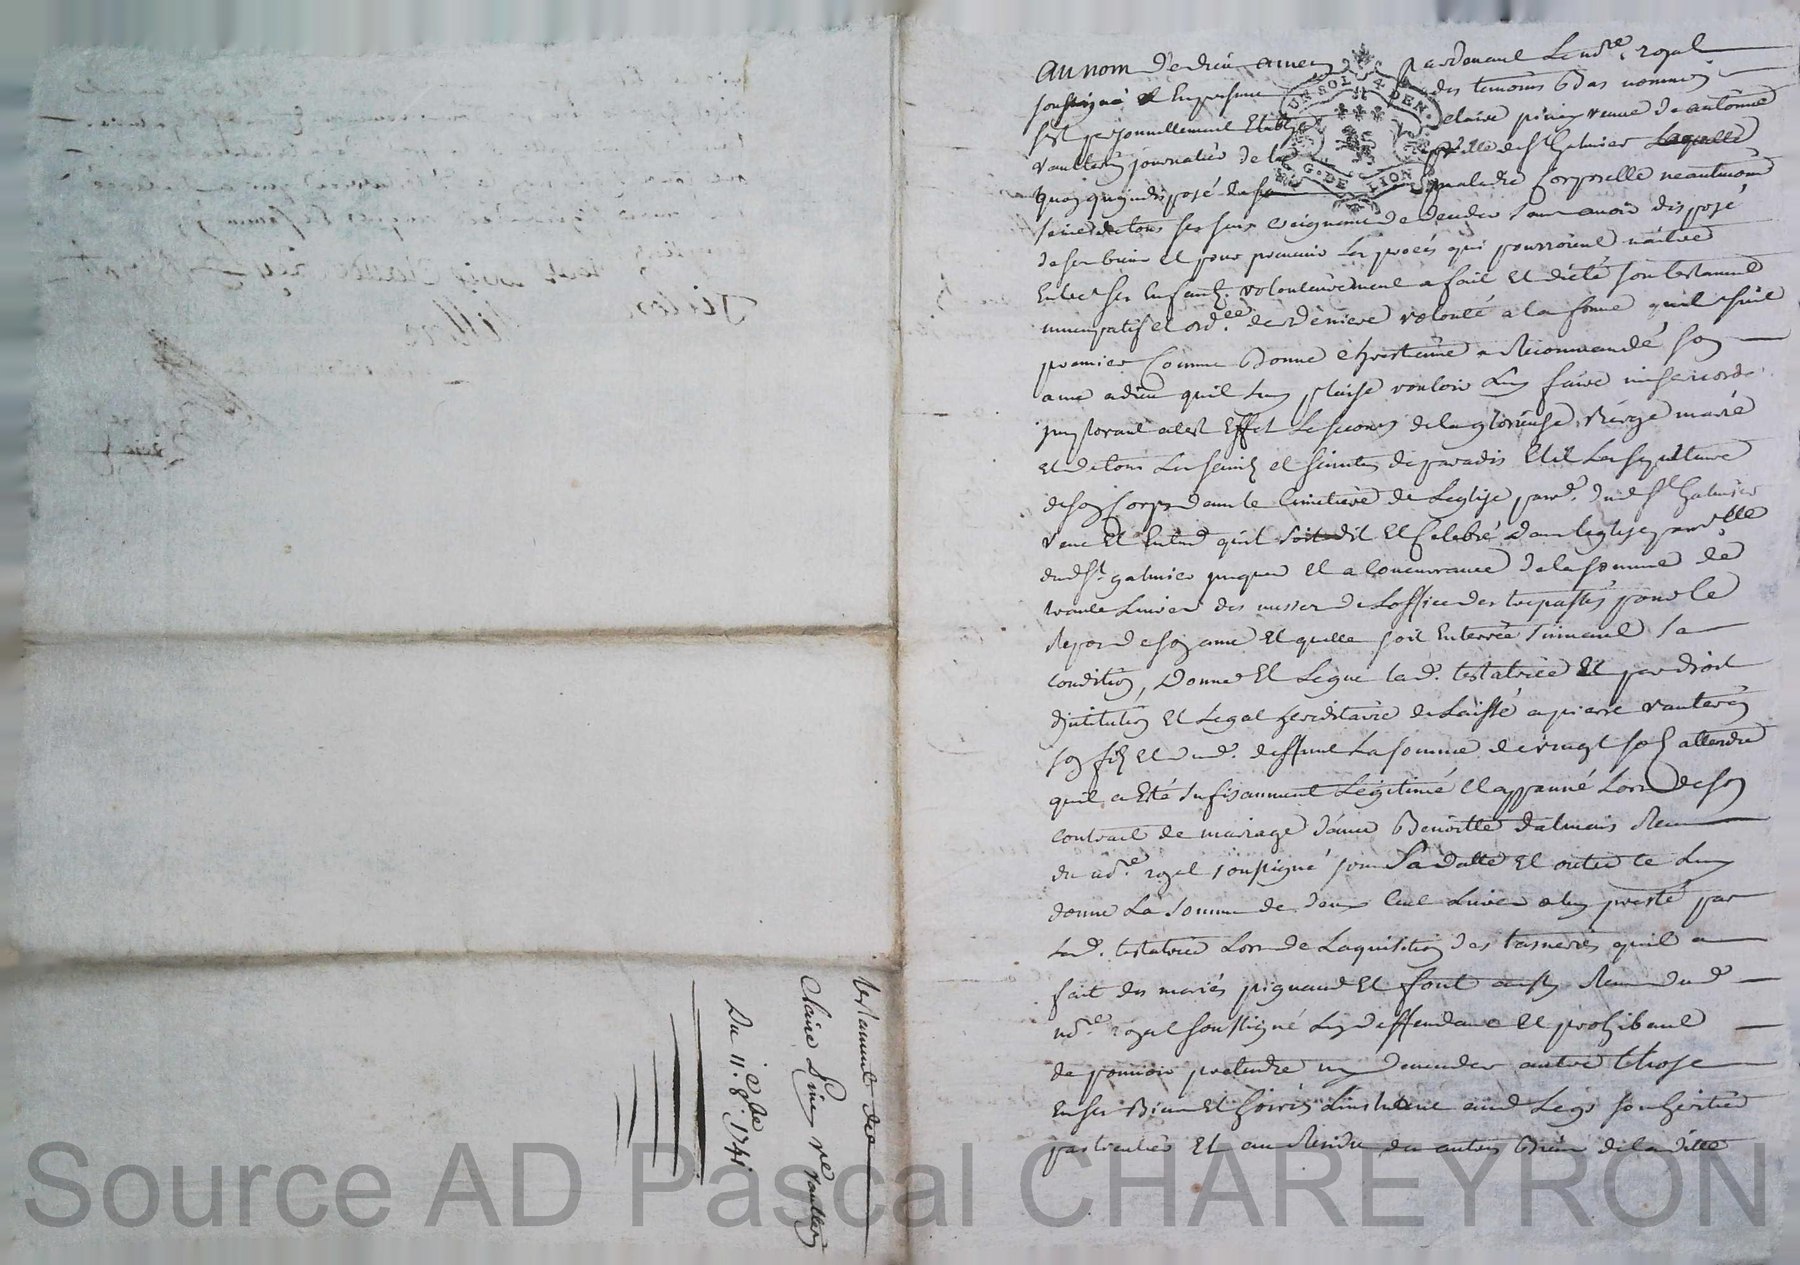 au nom de dieu amen pardevant le nore. royal
soussigné et en presence des temoins bas nommés
fut personnellement etablie claire piney veuve de antoine
vaulterin journalier de la ville de st galmier laquelle
quoy quindisposé de sa maladie corporelle neantmoins
saine de tous ses sens craignant de deceder sans avoir disposé
de ses biens et pour prevenir les procés qui pourroient naitre
entre ses enfants volontairement a fait et dicté son testament
nuncupatif et ordce. de derniere volonté a la forme quil suit
premier comme bonne chrestienne a recommandé son
ame a dieu quil luy plaise vouloir luy faire misericorde
implorant a cest effet le secours de la glorieuse vierge marie
et de tous les saints et saintes de paradis elit la sepulture
de son corps dans le cimetiere de leglise parrd. dud st galmier
veut et entend quil soit dit et celebré dans leglise parrlle
dud st. galmier jusques et a concurrance de la somme de
trante livres des messes de loffice des trepassés pour le
repos de son ame et quelle soit enterrée suivant sa
condition, donne et legue lad. testatrice et par droit
dinstitution et legat hereditaire delaissé a pierre vauterin
son fils et dud. deffunt la somme de vingt sols attendu
quil a esté sufisamment legitimé et appanné lors de son
contract de mariage danne benoitte dalmais receu
du nore. royal soussigné sous sa datte et outre ce luy
donne la somme de deux cent livres a luy presté par
lad. testatrice lors de laquisition des tasneries quil a
fait des mariés pignaud et font aussy receu dud
nore. royal soussigné luy deffendant et prohibant
de pouvoir pretendre ny demander autre chose
en ses biens et hoirie linstituant aud legs son heritier
particulier et au residu des autres biens de laditte
testament de
Claire Piney ve vaulterin
Du 11. 8bre. 1741
UN SOL 4 DEN.
G. DE LION
Source AD Pascal CHAREYRON